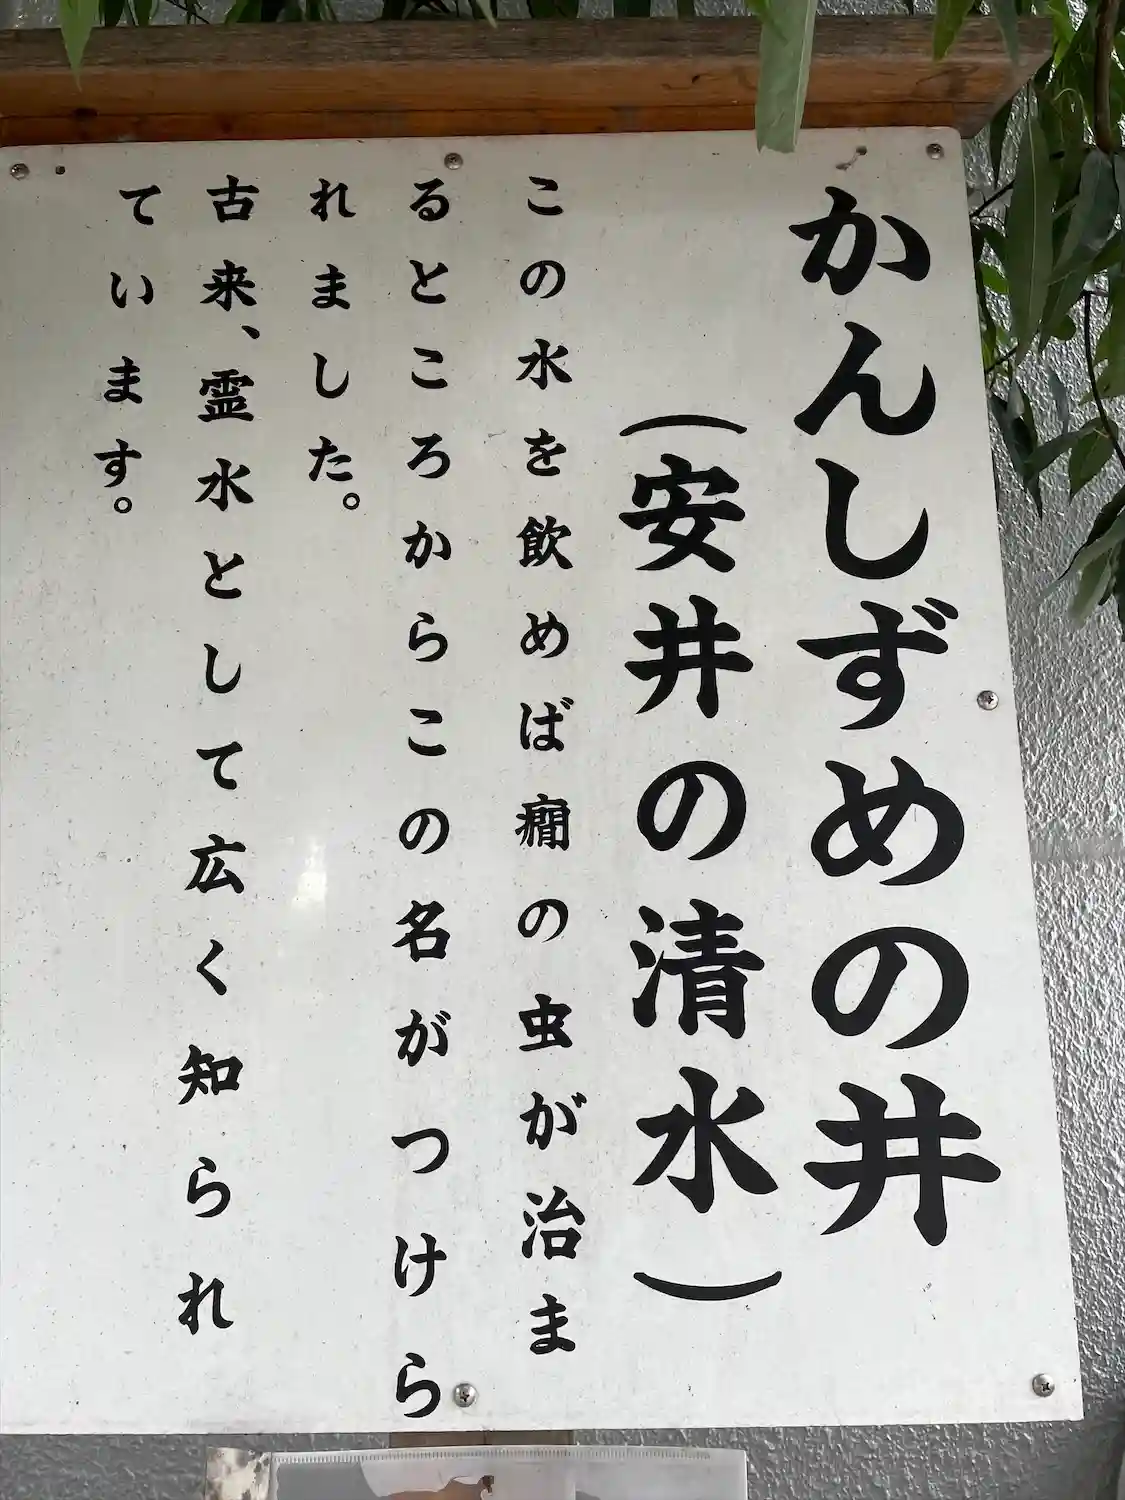 かんしずめの井
（安井の清水）
この水を飲めば癇の虫が治ま
るところからこの名がつけら
れました。
古来、霊水として広く知られ
ています。